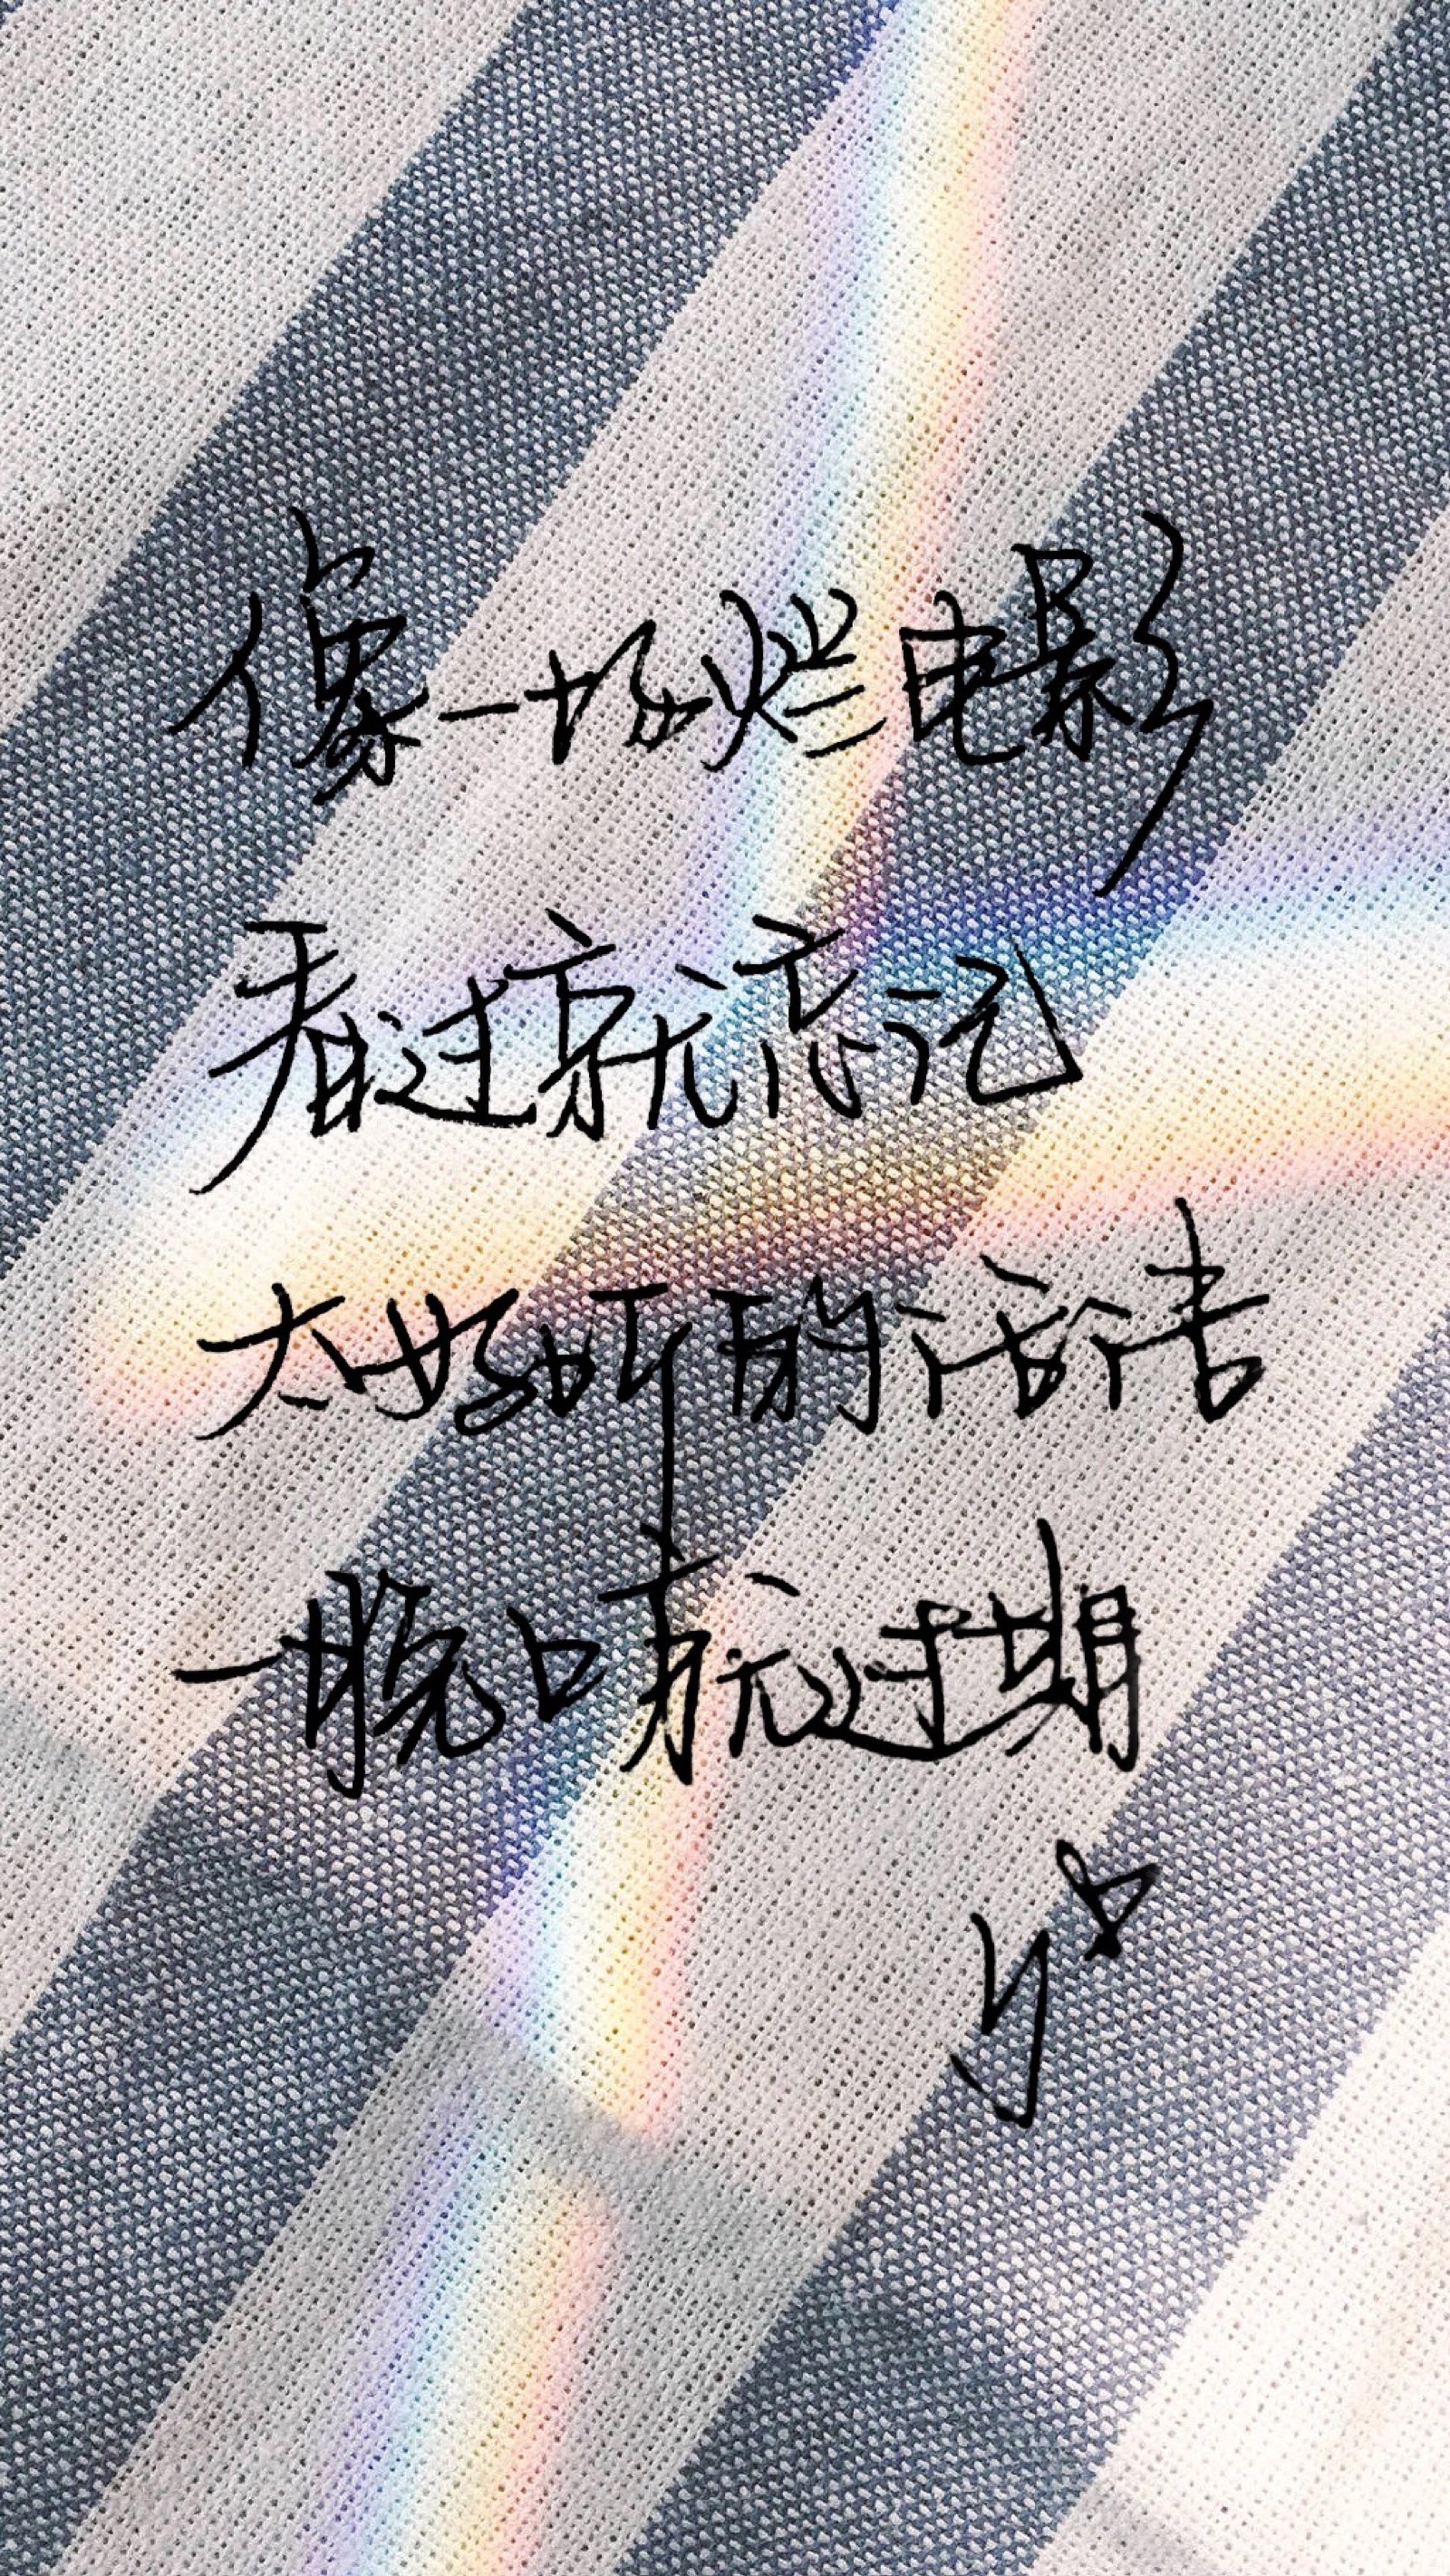 像一场烂电影
看过就忘记
太好听的话语
一脱口就过期
y